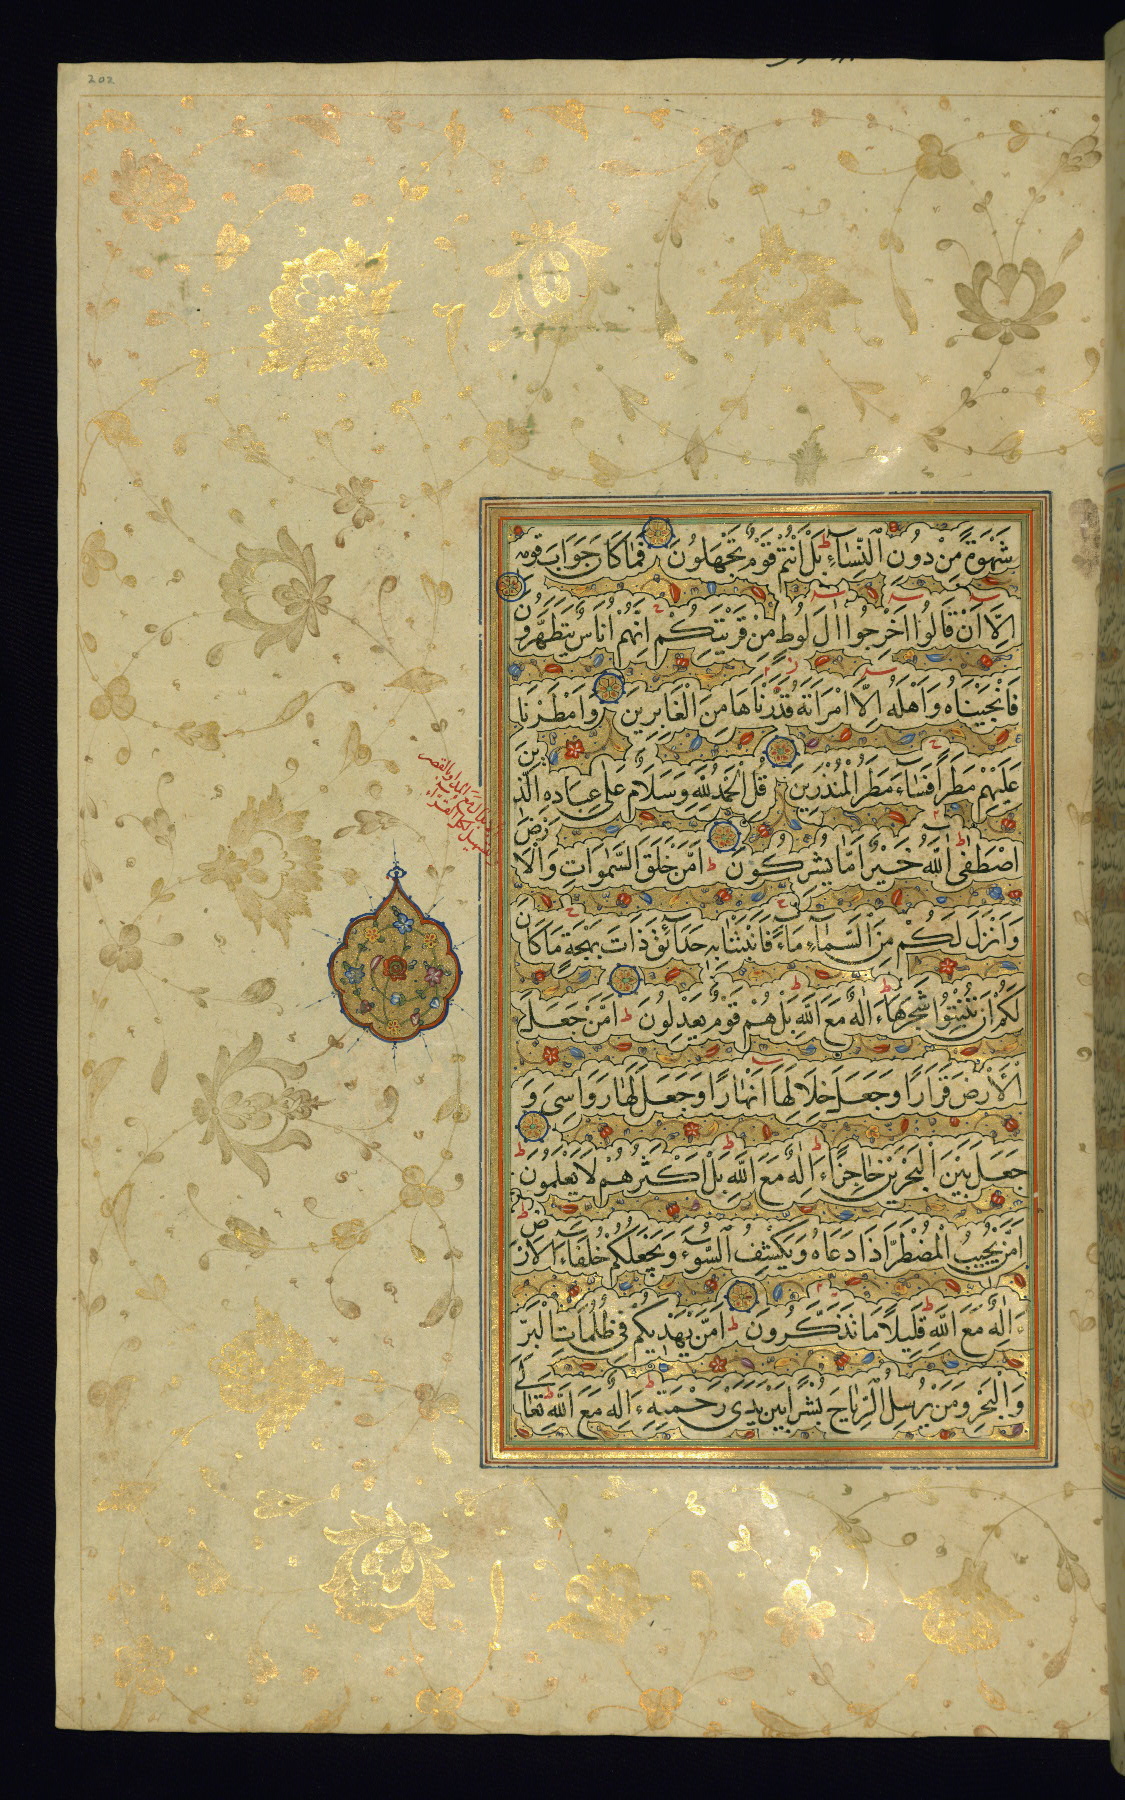 202
شَهْوَةً مِنْ دُونِ النِّسَاءِ بَلْ اَنْتُمْ قَوْمٌ تَجْهَلُونَ فَمَا كَانَ جَوَابَ قَوْمِهِ
اِلَّا اَنْ قَالُوا اَخْرِجُوا اٰلَ لُوطٍ مِنْ قَرْيَتِكُمْ اِنَّهُمْ اُنَاسٌ يَتَطَهَّرُونَ
فَاَنْجَيْنَاهُ وَاَهْلَهُ اِلَّا امْرَاَتَهُ قَدَّرْنَاهَا مِنَ الْغَابِرِينَ وَاَمْطَرْنَا
عَلَيْهِمْ مَطَرًا فَسَاءَ مَطَرُ الْمُنْذَرِينَ قُلِ الْحَمْدُ لِلّٰهِ وَسَلَامٌ عَلٰى عِبَادِهِ الَّذِينَ
اصْطَفٰى اٰللّٰهُ خَيْرٌ اَمَّا يُشْرِكُونَ اَمَّنْ خَلَقَ السَّمٰوَاتِ وَالْاَرْضَ
وَاَنْزَلَ لَكُمْ مِنَ السَّمَاءِ مَاءً فَاَنْبَتْنَا بِهِ حَدَائِقَ ذَاتَ بَهْجَةٍ مَا كَانَ
لَكُمْ اَنْ تُنْبِتُوا شَجَرَهَا ءَاِلٰهٌ مَعَ اللّٰهِ بَلْ هُمْ قَوْمٌ يَعْدِلُونَ اَمَّنْ جَعَلَ
الْاَرْضَ قَرَارًا وَجَعَلَ خِلَالَهَا اَنْهَارًا وَجَعَلَ لَهَا رَوَاسِيَ وَ
جَعَلَ بَيْنَ الْبَحْرَيْنِ حَاجِزًا ءَاِلٰهٌ مَعَ اللّٰهِ بَلْ اَكْثَرُهُمْ لَا يَعْلَمُونَ
اَمَّنْ يُجِيبُ الْمُضْطَرَّ اِذَا دَعَاهُ وَيَكْشِفُ السُّوءَ وَيَجْعَلُكُمْ خُلَفَاءَ الْاَرْضِ
ءَاِلٰهٌ مَعَ اللّٰهِ قَلِيلًا مَا تَذَكَّرُونَ اَمَّنْ يَهْدِيكُمْ فِي ظُلُمَاتِ الْبَرِّ
وَالْبَحْرِ وَمَنْ يُرْسِلُ الرِّيَاحَ بُشْرًا بَيْنَ يَدَيْ رَحْمَتِهِ ءَاِلٰهٌ مَعَ اللّٰهِ تَعَالَى